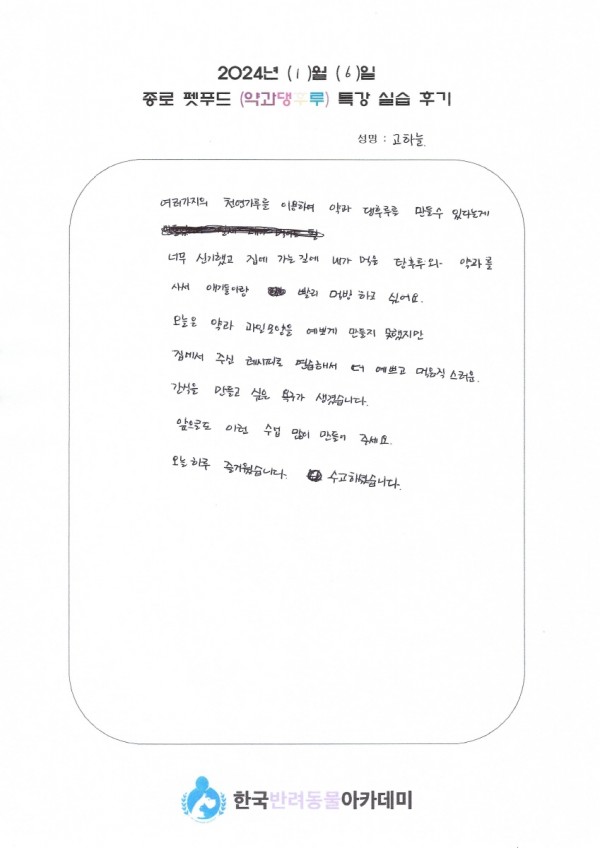 2024년 (1)월 (6)일
종로 펫푸드 (약과댕후루) 특강 실습 후기
성명 : 고하늘
여러가지의 천연가루를 이용하여 약과 댕후루를 만들수 있다는게
너무 신기했고 집에 가는길에 내가 먹을 탕후루와 약과를
사서 애기들이랑 빨리 먹방 하고 싶어요.
오늘은 약과 과일모양을 예쁘게 만들지 못했지만
집에서 주신 레시피로 연습해서 더 예쁘고 먹음직스러운.
간식을 만들고 싶은 욕구가 생겼습니다.
앞으로도 이런 수업 많이 만들어 주세요.
오늘하루 즐거웠습니다. 수고하셨습니다.
한국반려동물아카데미